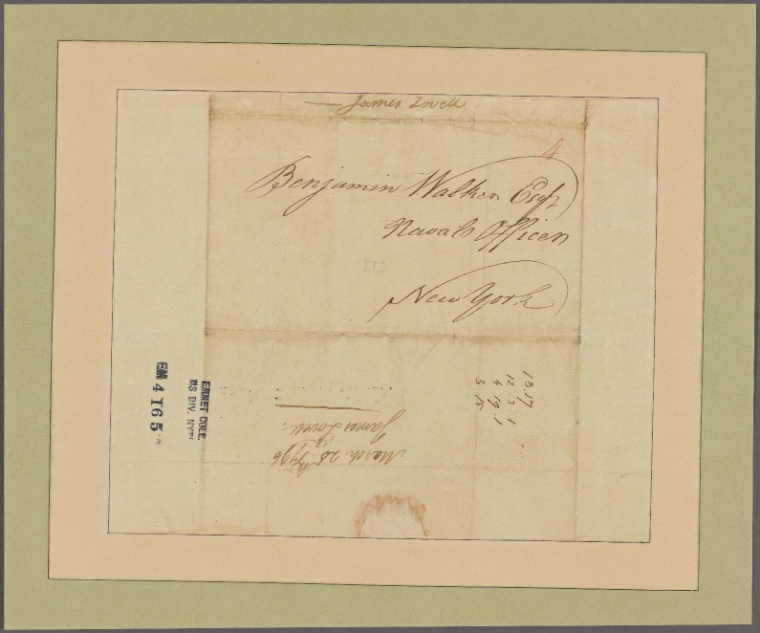 James Lovell
4
Benjamin Walker Esqr
Naval Officer
New York
H
13.17
12.3.1
4 19.1
3 15
James Lovell
March 28 1796
EMMET COLL.
MS DIV. NYPL
EM 4165